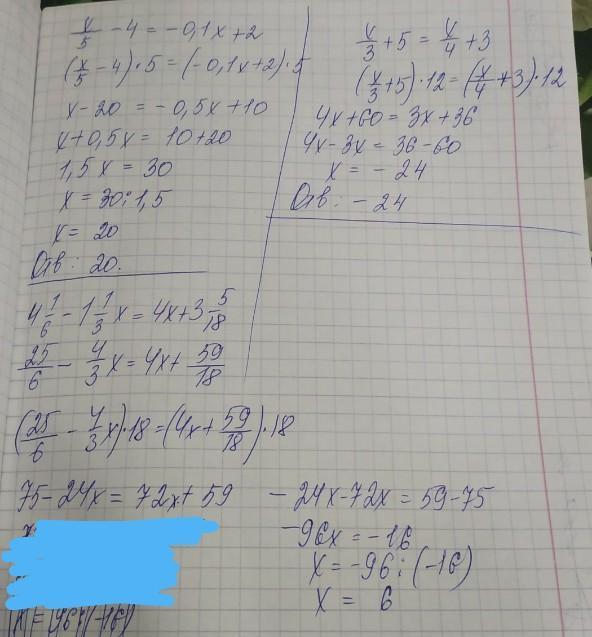 x/5 - 4 = -0,1x + 2
(x/5 - 4) · 5 = (-0,1x + 2) · 5
x - 20 = -0,5x + 10
x + 0,5x = 10 + 20
1,5x = 30
x = 30 : 1,5
x = 20
Отв: 20.
x/3 + 5 = x/4 + 3
(x/3 + 5) · 12 = (x/4 + 3) · 12
4x + 60 = 3x + 36
4x - 3x = 36 - 60
x = - 24
Отв: - 24
4 1/6 - 1 1/3 x = 4x + 3 5/18
25/6 - 4/3 x = 4x + 59/18
(25/6 - 4/3 x) · 18 = (4x + 59/18) · 18
75 - 24x = 72x + 59
- 24x - 72x = 59 - 75
-96x = -16
x = -96 : (-16)
x = 6